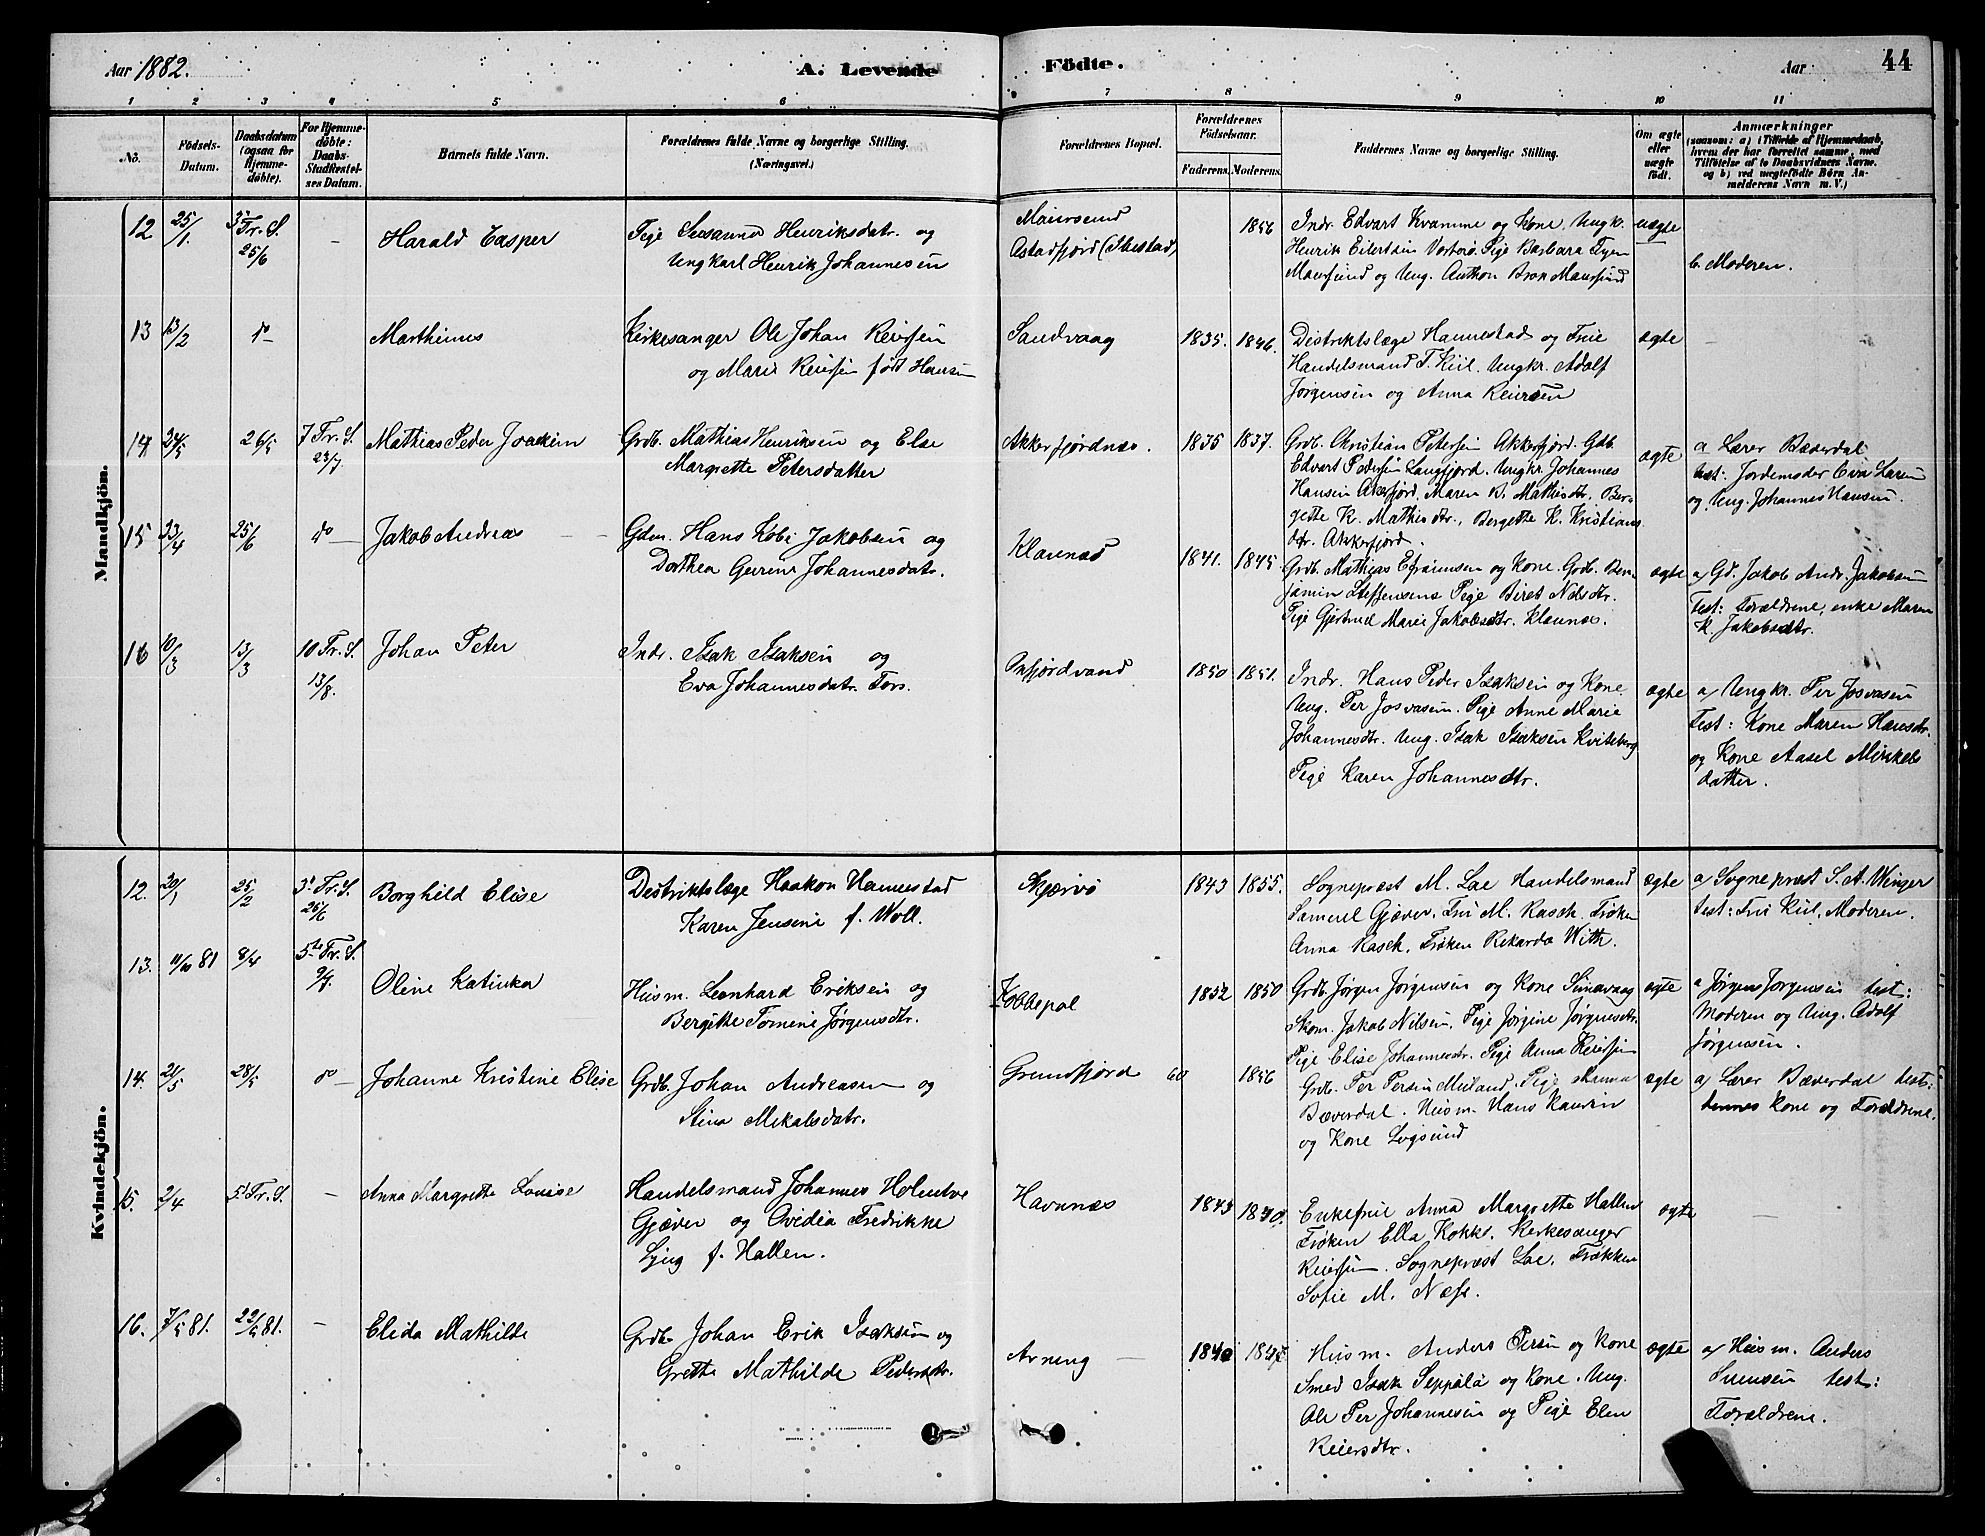 Aar 1882.
A. Levende Födte.
Aar 44
1 2 3 4 5 6 7 8 9 10 11
No.
Födsels-Datum.
Daabsdatum (ogsaa for Hjemmedöbte).
For Hjemmedöbte: Daabs-Stadfæstelses Datum.
Barnets fulde Navn.
Forældrenes fulde Navne og borgerlige Stilling.
(Næringsvei.)
Forældrenes Bopæl.
Forældrenes Födselsaar.
Faderens. Moderens.
Faddernes Navne og borgerlige Stilling.
Om ægte eller uægte födt.
Anmærkninger
(saasom: a) i Tilfælde af Hjemmedaab, hvem der har forrettet samme, med Tilföielse af to Daabsvidners Navne, og b) ved uægtefödte Börn Anmelderens Navn m. V.)
Mandkjön.
12 25/1 3' Tr. S. 25/6 — Harald Casper
Pige Susanna Henriksdatr. og
Ungkarl Henrik Johannesen
Maursund
Astadfjord (Ibestad)
1856
Indr. Edvart Kvamme og Kone, Ungk.
Henrik Eilertsen Vorterø. Pige Barbara
Maursund og Ung. Anthon Brox Maursund
uægte
b. Moderen.
13 13/2 do — Marthinus
Kirkesanger Ole Johan Reiersen
og Marie Reiersen født Hansen
Sandvaag
1835. 1846.
Distriktslæge Hannestad og Frue
Handelsmand T. Kiil. Ungkr. Adolf
Jørgensen og Anna Reiersen
ægte —
14 24/5 26/5 7 Tr. S. 23/7 Mathias Peder Joackim
Grdb. Mathias Henriksen og Else
Margrette Petersdatter
Akkerfjordnæs.
1835 1837.
Grdb. Christian Petersen Akkerfjord. Gdb.
Edvart Pedersen Langfjord. Ungkr. Johannes
Hansen Akerfjord, Maren B. Mathisdtr. Ber-
gette K. Mathisdtr., Bergette K. Kristians
dtr. Akkerfjord.
ægte
a Lærer Bæverdal
test: Jordemoder Eva Larsen
og Ung. Johannes Hansen.
15 23/4 25/6 do — Jakob Andreas
Gdm. Hans Kobi Jakobsen og
Dorthea Gurine Johannesdatr.
Klaunæs
1841. 1845
Grdb. Mathias Efraimsen og Kone. Grdb. Ben-
jamin Steffensens Pige Biret Nilsdtr.
Pige Gjertrud Marie Jakobsdtr. Klaunæs.
ægte
a/ Gd. Jakob Andr. Jakobsen
Test: Forældrene, enke Maren
K. Jakobsdtr.
16 10/3 13/3 10 Tr. S. 13/8. Johan Peter
Indr. Isak Isaksen og
Eva Johannesdatr. Fors.
Oxfjordvand
1850 1851.
Indr. Hans Peder Isaksen og Kone
Ung. Per Josvasen. Pige Anne Marie
Johannesdtr. Ung. Isak Isaksen Kviteberg
Pige Karen Johannesdtr.
ægte
a/ Ungkr. Per Josvasen
Test: Kone Maren Hansdtr.
og Kone Aasel Mikkels
datter.
Kvindekjön.
12. 20/1 25/2 3' Tr. S. 25/6 Borghild Elise
Distriktslæge Haakon Hannestad
Karen Jensine f. Woll.
Skjærvø
1843 1855.
Sogneprest M. Lae Handelsmand
Samuel Gjæver. Fru M. Rasch. Frøken
Anna Rasch. Frøken Rikarda With.
ægte
a/ Sogneprest S. A. Winger
test: Fru Kiil, Moderen.
13. 11/10 81 8/4 5te Tr. S. 9/7. Oline Katinka
Husm. Leonhard Eriksen og
Bergitte Tomine Jørgensdtr.
Kobbepol
1852 1850
Grdb. Jørgen Jørgensen og Kone
Skom. Jakob Nilsen. Pige Jørgine Jørgensdtr.
Pige Elise Johannesdtr. Pige Anna Reiersen
ægte
a Jørgen Jørgensen test:
Moderen og Ung. Adolf
Jørgensen.
14. 21/5 28/5 do — Johanne Kristine Elise
Grdb. Johan Andreassen og
Stina Mikalsdatr.
Grundfjord
60 1856
Grdb. Per Persen Meiland. Pige
Bæverdal. Husm. Hans Kaurin
og Kone Logsund
ægte
a/ Lærer Bæverdal test:
dennes Kone og Forældrene.
15. 2/4 5' Tr. S. — Anna Margrette Louise
Handelsmand Johannes
Gjæver og Ovidia Fredrikke
Lyng f. Hallen.
Havnnæs
1843 1840.
Enkefrue Anna Margrette Hallen
Frøken Ella Kokk. Kirkesanger
Reiersen. Sogneprest Lae. Frøkken
Sofie M. Næss.
ægte —
16. 7/5 81. 22/5 81. — Elida Mathilde
Grdb Johan Erik Isaksen og
Grette Mathilde Pedersdtr.
Arneng —
1840
Husm. Anders Persen og Kone
Smed Isak Seppälä og Kone. Ung.
Ole Per Johannesen og Pige Elen
Reiersdtr.
ægte
a/ Husm. Anders
test:
Forældrene.